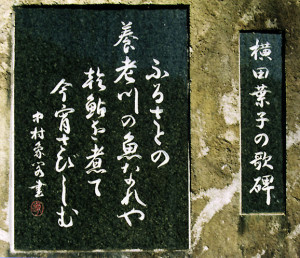 横田葉子の歌碑
ふるさとの
養老川の魚なれや
乾鮎を煮て
今宵さびしむ
中村象閣書